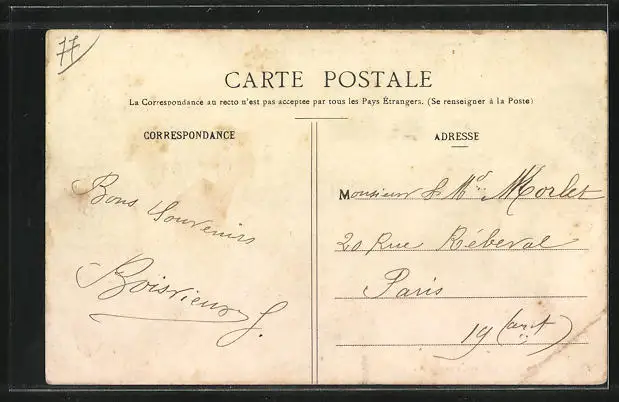 CARTE POSTALE
La Correspondance au recto n'est pas acceptée par tous les Pays Étrangers. (Se renseigner à la Poste)
CORRESPONDANCE
Bons Souvenirs
Boisvieux J.
ADRESSE
Monsieur & Md Morlet
20 Rue Rébeval
Paris
19 (art)